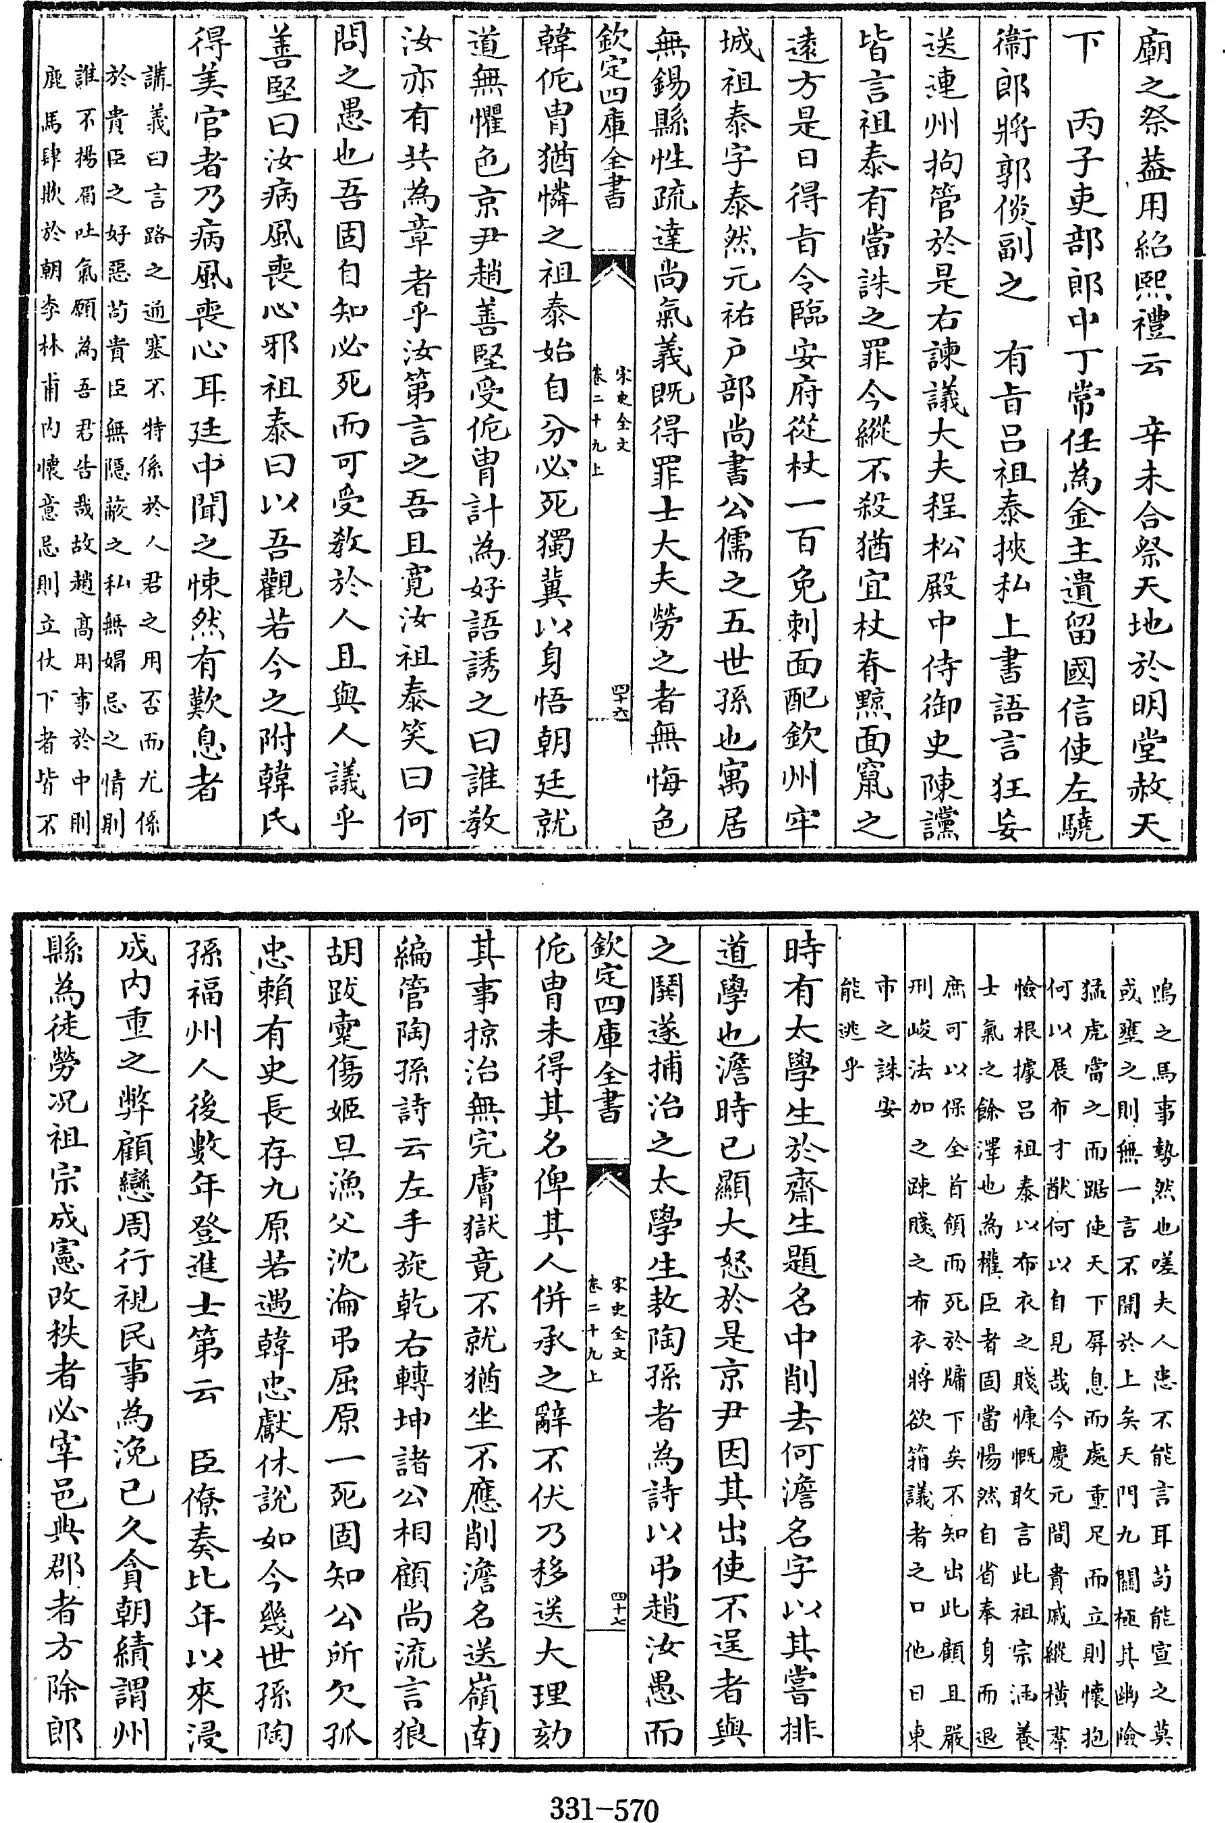 廟之祭葢用紹熙禮云　辛未合祭天地於明堂赦天
下　丙子吏部郎中丁常任為金主遺留國信使左驍
衞郎將郭倓副之　有旨呂祖泰挾私上書語言狂妄
送連州拘管於是右諫議大夫程松殿中侍御史陳讜
皆言祖泰有當誅之罪今縱不殺猶宜杖脊黥面竄之
遠方是日得旨令臨安府從杖一百免刺面配欽州牢
城祖泰字泰然元祐户部尚書公儒之五世孫也寓居
無錫縣性疏達尚氣義既得罪士大夫勞之者無悔色
欽定四庫全書
宋史全文
卷二十九上
四十六
韓侂胄猶憐之祖泰始自分必死獨冀以身悟朝廷就
道無懼色京尹趙善堅受侂胄計為好語誘之曰誰教
汝亦有共為章者乎汝第言之吾且寛汝祖泰笑曰何
問之愚也吾固自知必死而可受教於人且與人議乎
善堅曰汝病風喪心邪祖泰曰以吾觀若今之附韓氏
得美官者乃病風喪心耳廷中聞之悚然有歎息者
講義曰言路之通塞不特係於人君之用否而尤係
於貴臣之好惡茍貴臣無隱蔽之私無娼忌之情則
誰不揚眉吐氣願為吾君告哉故趙髙用事於中則
鹿馬肆欺於朝李林甫内懷意忌則立仗下者皆不
鳴之馬事勢然也嗟夫人患不能言耳茍能宣之莫
或壅之則無一言不聞於上矣天門九關極其幽險
猛虎當之而踞使天下屏息而處重足而立則懷抱
何以展布才猷何以自見哉今慶元間貴戚縱横羣
憸根據呂祖泰以布衣之賤慷慨敢言此祖宗涵養
士氣之餘澤也為權臣者固當惕然自省奉身而退
庶可以保全首領而死於牖下矣不知出此顧且嚴
刑峻法加之踈賤之布衣將欲箝議者之口他日東
市之誅安
能逃乎
時有太學生於齋生題名中削去何澹名字以其嘗排
道學也澹時已顯大怒於是京尹因其出使不逞者與
之鬨遂捕治之太學生敖陶孫者為詩以弔趙汝愚而
欽定四庫全書
宋史全文
卷二十九上
四十七
侂胄未得其名俾其人併承之辭不伏乃移送大理劾
其事掠治無完膚獄竟不就猶坐不應削澹名送嶺南
編管陶孫詩云左手旋乾右轉坤諸公相顧尚流言狼
胡跋疐傷姬旦漁父沈淪弔屈原一死固知公所欠孤
忠賴有史長存九原若遇韓忠獻休說如今幾世孫陶
孫福州人後數年登進士第云　臣僚奏比年以來浸
成内重之弊顧戀周行視民事為浼已久貪朝績謂州
縣為徒勞况祖宗成憲改秩者必宰邑典郡者方除郎
331-570